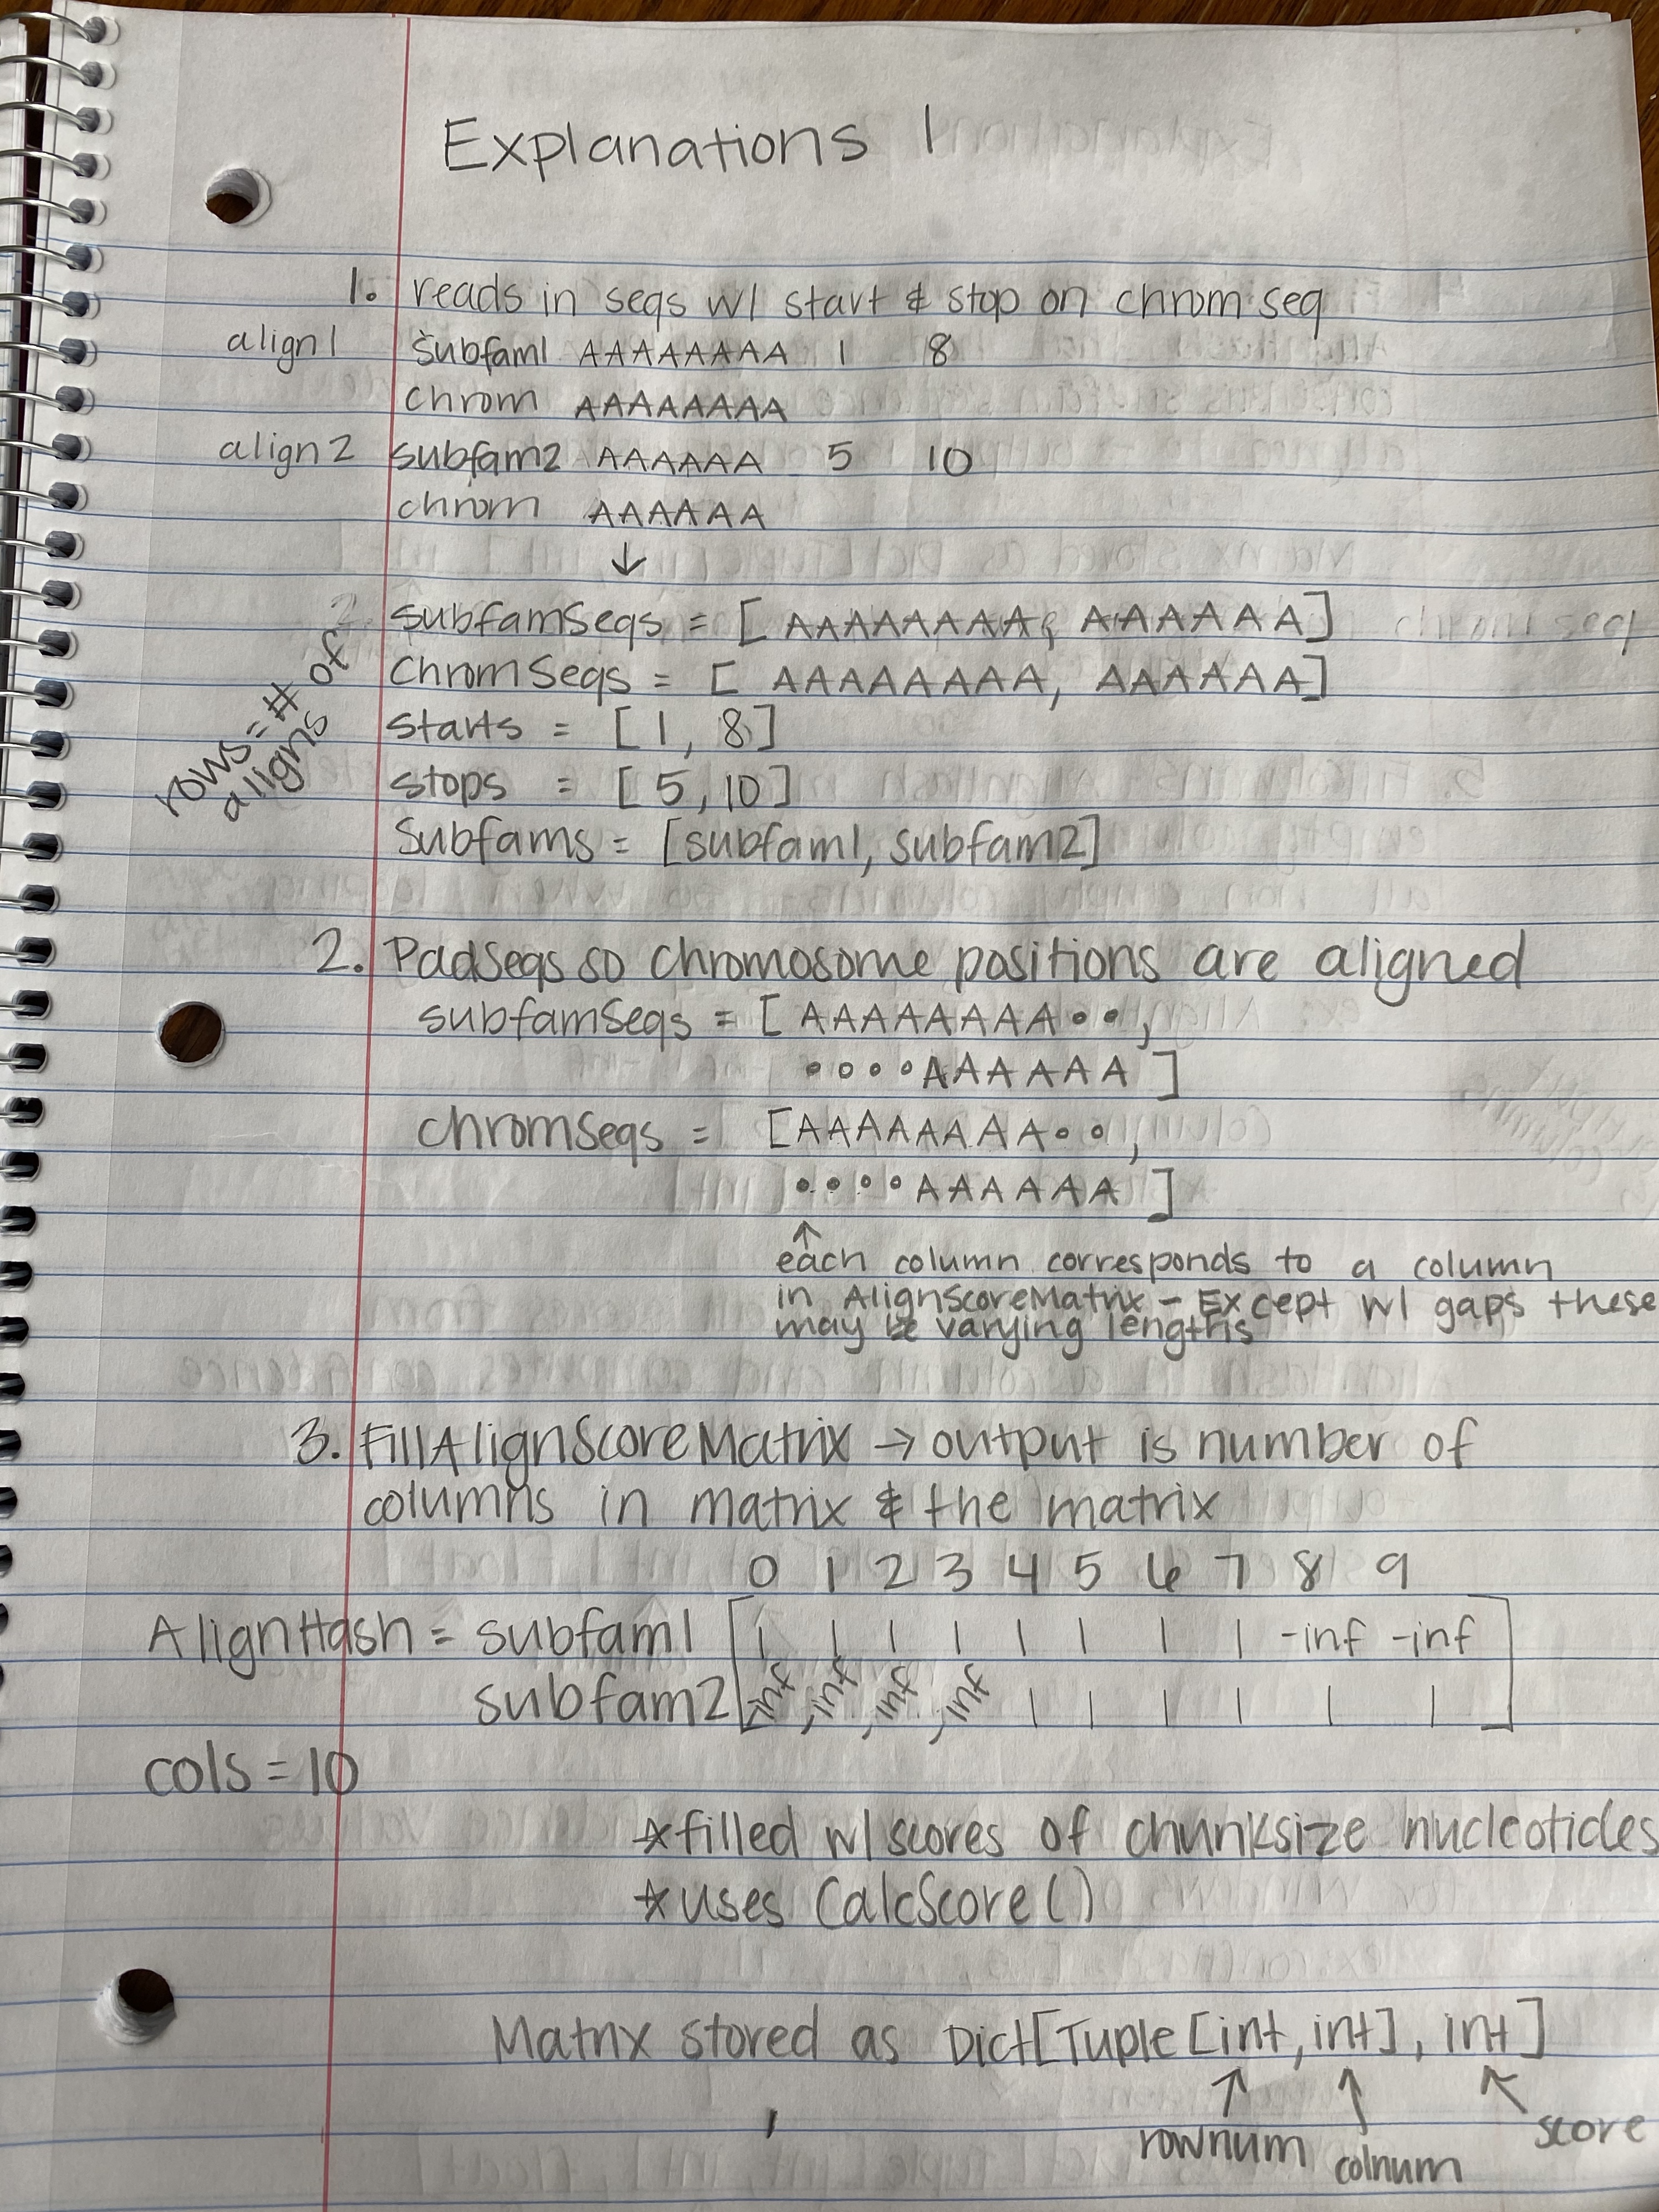 Explanations 1
1. reads in seqs w/ start & stop on chrom seq
align1 subfam1 AAAAAAAA 1 8
chrom AAAAAAAA
align2 subfam2 AAAAAA 5 10
chrom AAAAAA
↓
subfamSeqs = [ AAAAAAAA, AAAAAA]
ChromSeqs = [ AAAAAAAA, AAAAAA]
starts = [1, 8]
stops = [5, 10]
Subfams = [subfam1, subfam2]
rows = # of
aligns
2. PadSeqs so chromosome positions are aligned
subfamSeqs = [ AAAAAAAA••,
••••AAAAAA ]
chromSeqs = [AAAAAAAA••,
••••AAAAAA ]
↑
each column corresponds to a column
in AlignScoreMatrix - Except w/ gaps these
may be varying lengths
3. FillAlignScoreMatrix → output is number of
columns in matrix & the matrix
0 1 2 3 4 5 6 7 8 9
AlignHash = subfam1 [1 1 1 1 1 1 1 1 -inf -inf
subfam2 -inf -inf -inf -inf 1 1 1 1 1 1 ]
cols = 10
*filled w/ scores of chunksize nucleotides
*uses CalcScore()
Matrix stored as Dict[Tuple[int, int], int]
↑ ↑ ↖
rownum colnum score